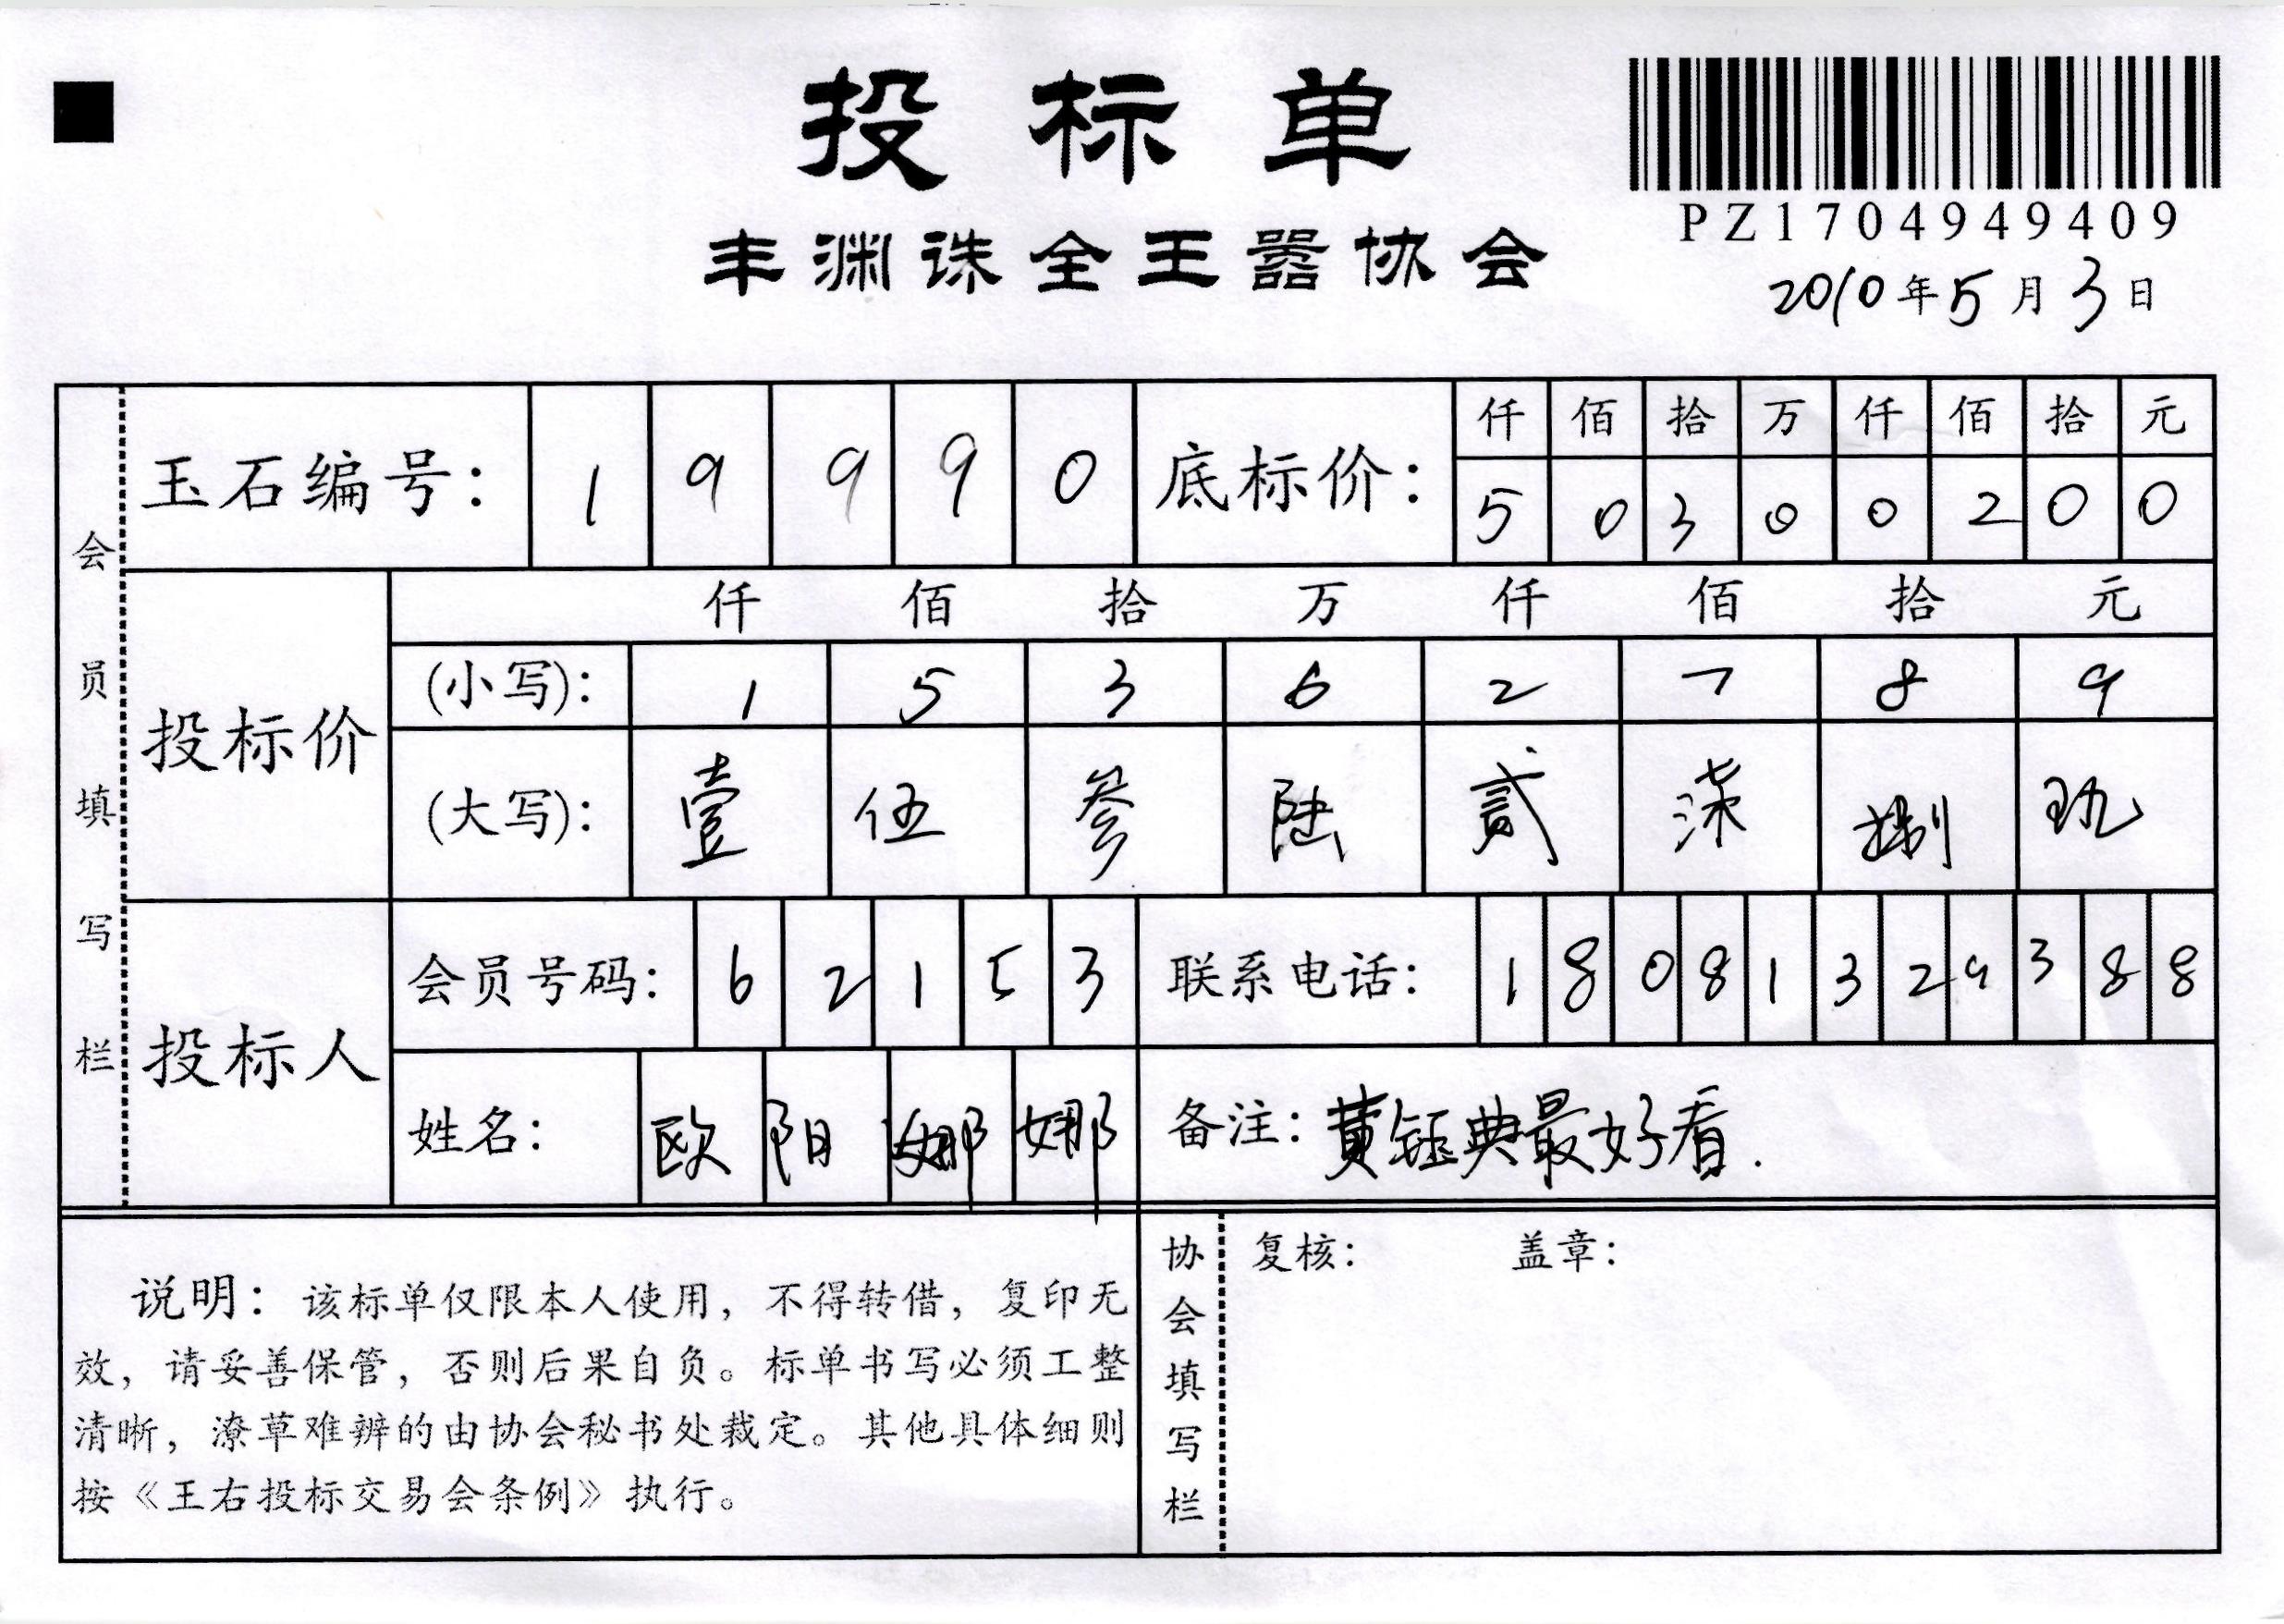 投标单
丰渊诛全王嚣协会
PZ1704949409
2010年5月3日
会员填写栏
玉石编号： 1 9 9 9 0
底标价： 仟 佰 拾 万 仟 佰 拾 元
5 0 3 0 0 2 0 0
投标价
仟 佰 拾 万 仟 佰 拾 元
(小写)： 1 5 3 6 2 7 8 9
(大写)： 壹 伍 叁 陆 贰 柒 捌 玖
投标人
会员号码： 6 2 1 5 3
联系电话： 1 8 0 8 1 3 2 9 3 8 8
姓名： 欧 阳 娜 娜
备注：黄钰典最好看.
说明：该标单仅限本人使用，不得转借，复印无
效，请妥善保管，否则后果自负。标单书写必须工整
清晰，潦草难辨的由协会秘书处裁定。其他具体细则
按《王右投标交易会条例》执行。
协会填写栏
复核： 盖章：